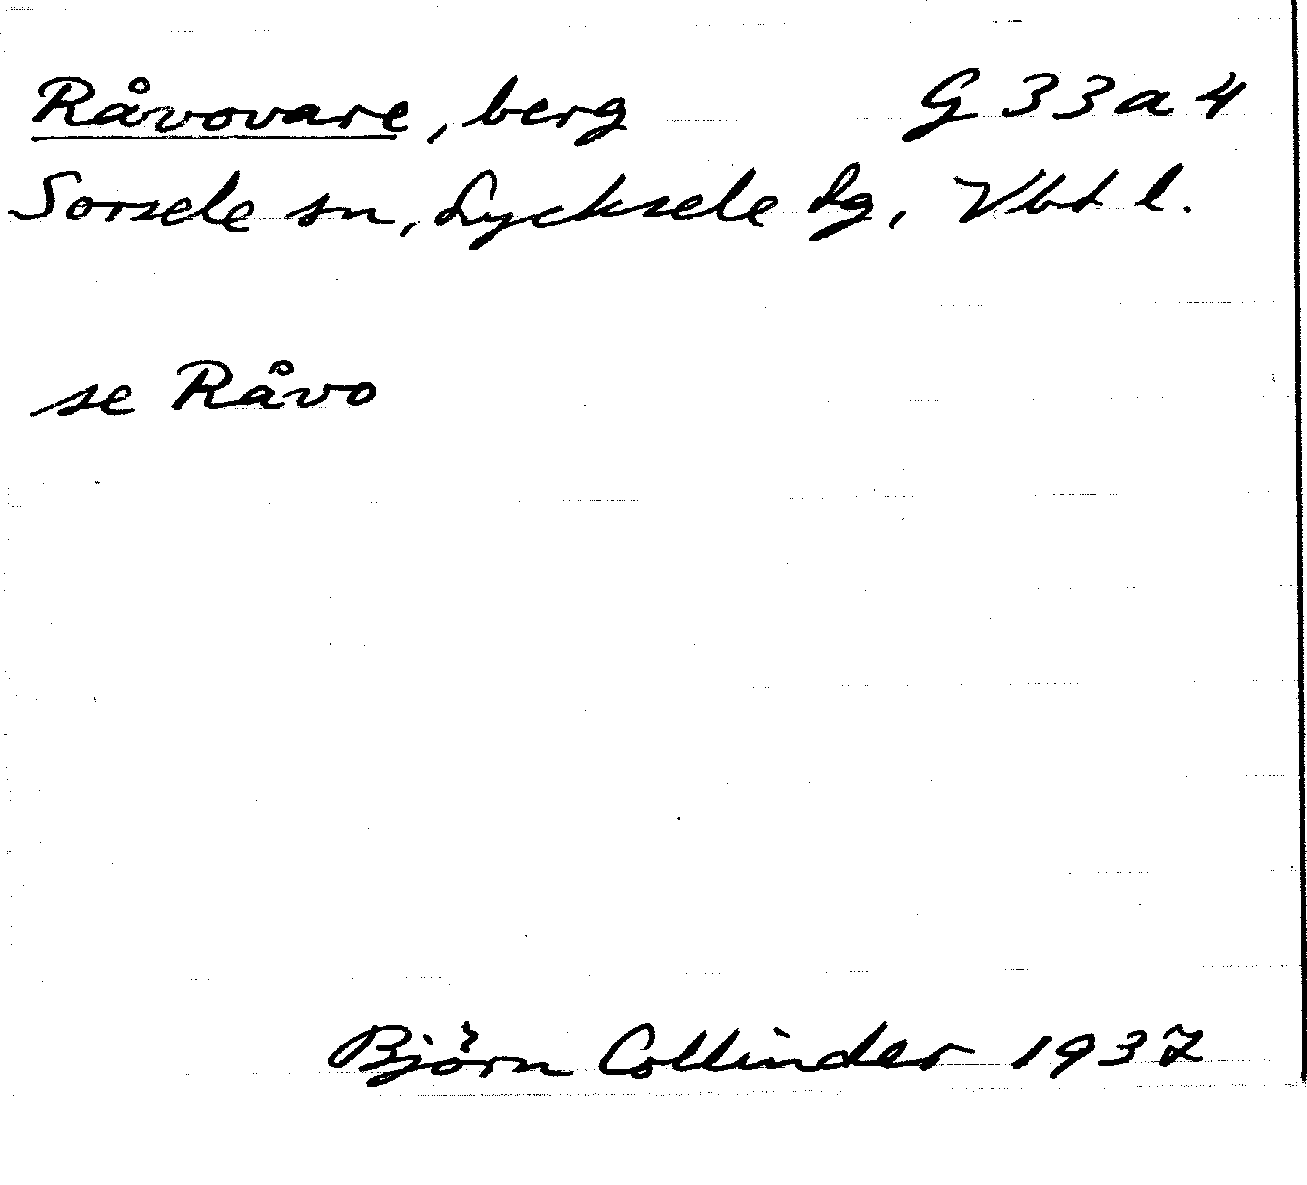 Råvovare, berg G 33 a 4
Sorsele sn, Lycksele lg, Vbt l.
se Råvo
Björn Collinder 1937